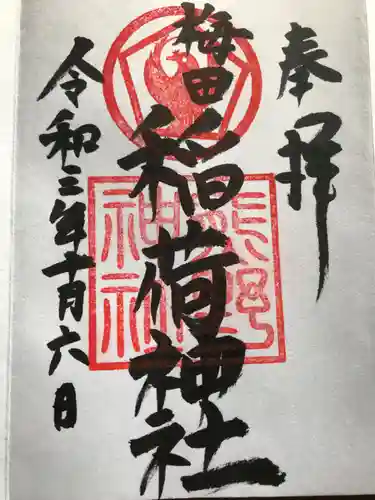 奉拝
梅田
稲荷神社
令和三年十月六日
熊野
神社